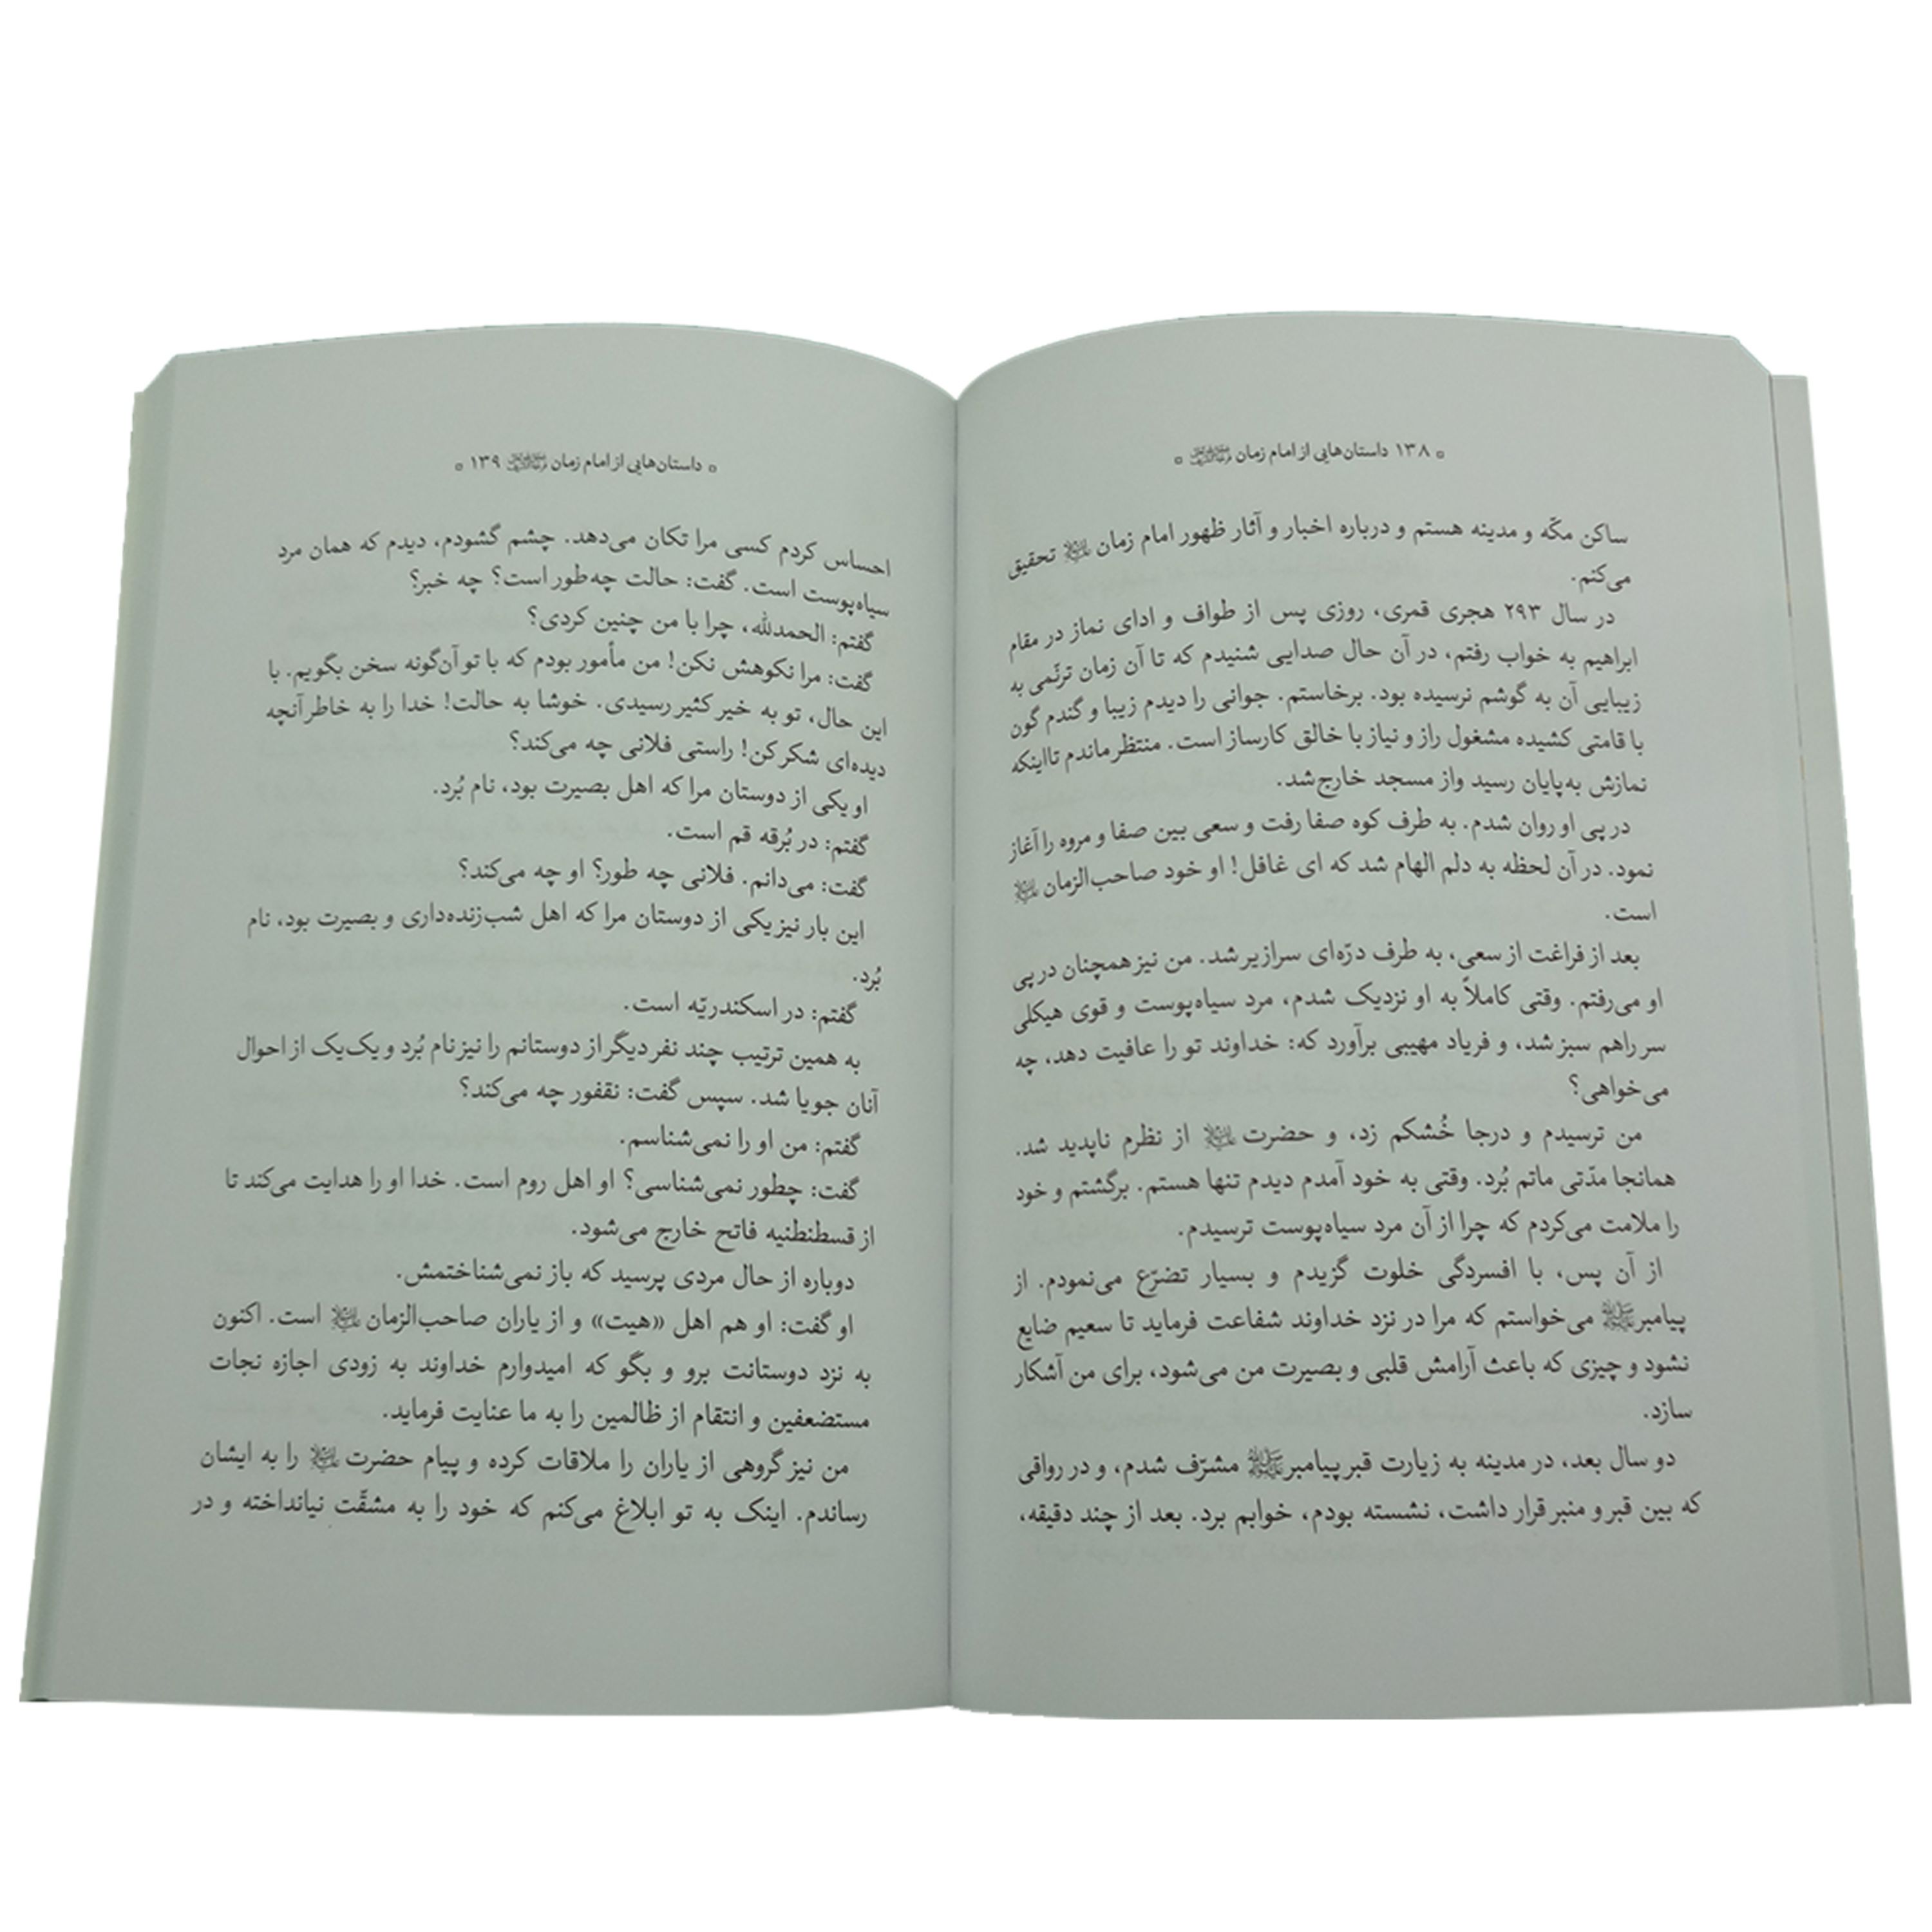 ۱۳۸ داستان‌هایی از امام زمان
ساکن مکّه و مدینه هستم و درباره اخبار و آثار ظهور امام زمان علیه‌السلام تحقیق
می‌کنم.
در سال ۲۹۳ هجری قمری، روزی پس از طواف و ادای نماز در مقام
ابراهیم به خواب رفتم، در آن حال صدایی شنیدم که تا آن زمان ترنّمی به
زیبایی آن به گوشم نرسیده بود. برخاستم. جوانی را دیدم زیبا و گندم گون
با قامتی کشیده مشغول راز و نیاز با خالق کارساز است. منتظر ماندم تااینکه
نمازش به‌پایان رسید واز مسجد خارج شد.
در پی او روان شدم. به طرف کوه صفا رفت و سعی بین صفا و مروه را آغاز
نمود. در آن لحظه به دلم الهام شد که ای غافل! او خود صاحب‌الزمان علیه‌السلام
است.
بعد از فراغت از سعی، به طرف درّه‌ای سرازیر شد. من نیز همچنان در پی
او می‌رفتم. وقتی کاملاً به او نزدیک شدم، مرد سیاه‌پوست و قوی هیکلی
سر راهم سبز شد، و فریاد مهیبی برآورد که: خداوند تو را عافیت دهد، چه
می‌خواهی؟
من ترسیدم و درجا خُشکم زد، و حضرت علیه‌السلام از نظرم ناپدید شد.
همانجا مدّتی ماتم بُرد. وقتی به خود آمدم دیدم تنها هستم. برگشتم و خود
را ملامت می‌کردم که چرا از آن مرد سیاه‌پوست ترسیدم.
از آن پس، با افسردگی خلوت گزیدم و بسیار تضرّع می‌نمودم. از
پیامبر ﷺ می‌خواستم که مرا در نزد خداوند شفاعت فرماید تا سعیم ضایع
نشود و چیزی که باعث آرامش قلبی و بصیرت من می‌شود، برای من آشکار
سازد.
دو سال بعد، در مدینه به زیارت قبر پیامبر ﷺ مشرّف شدم، و در رواقی
که بین قبر و منبر قرار داشت، نشسته بودم، خوابم برد. بعد از چند دقیقه،
داستان‌هایی از امام زمان ۱۳۹
احساس کردم کسی مرا تکان می‌دهد. چشم گشودم، دیدم که همان مرد
سیاه‌پوست است. گفت: حالت چه‌طور است؟ چه خبر؟
گفتم: الحمدلله، چرا با من چنین کردی؟
گفت: مرا نکوهش نکن! من مأمور بودم که با تو آن‌گونه سخن بگویم. با
این حال، تو به خیر کثیر رسیدی. خوشا به حالت! خدا را به خاطر آنچه
دیده‌ای شکر کن! راستی فلانی چه می‌کند؟
او یکی از دوستان مرا که اهل بصیرت بود، نام بُرد.
گفتم: در بُرقه قم است.
گفت: می‌دانم. فلانی چه طور؟ او چه می‌کند؟
این بار نیز یکی از دوستان مرا که اهل شب‌زنده‌داری و بصیرت بود، نام
بُرد.
گفتم: در اسکندریّه است.
به همین ترتیب چند نفر دیگر از دوستانم را نیز نام بُرد و یک‌یک از احوال
آنان جویا شد. سپس گفت: نقفور چه می‌کند؟
گفتم: من او را نمی‌شناسم.
گفت: چطور نمی‌شناسی؟ او اهل روم است. خدا او را هدایت می‌کند تا
از قسطنطنیه فاتح خارج می‌شود.
دوباره از حال مردی پرسید که باز نمی‌شناختمش.
او گفت: او هم اهل «هیت» و از یاران صاحب‌الزمان علیه‌السلام است. اکنون
به نزد دوستانت برو و بگو که امیدوارم خداوند به زودی اجازه نجات
مستضعفین و انتقام از ظالمین را به ما عنایت فرماید.
من نیز گروهی از یاران را ملاقات کرده و پیام حضرت علیه‌السلام را به ایشان
رساندم. اینک به تو ابلاغ می‌کنم که خود را به مشقّت نیانداخته و در